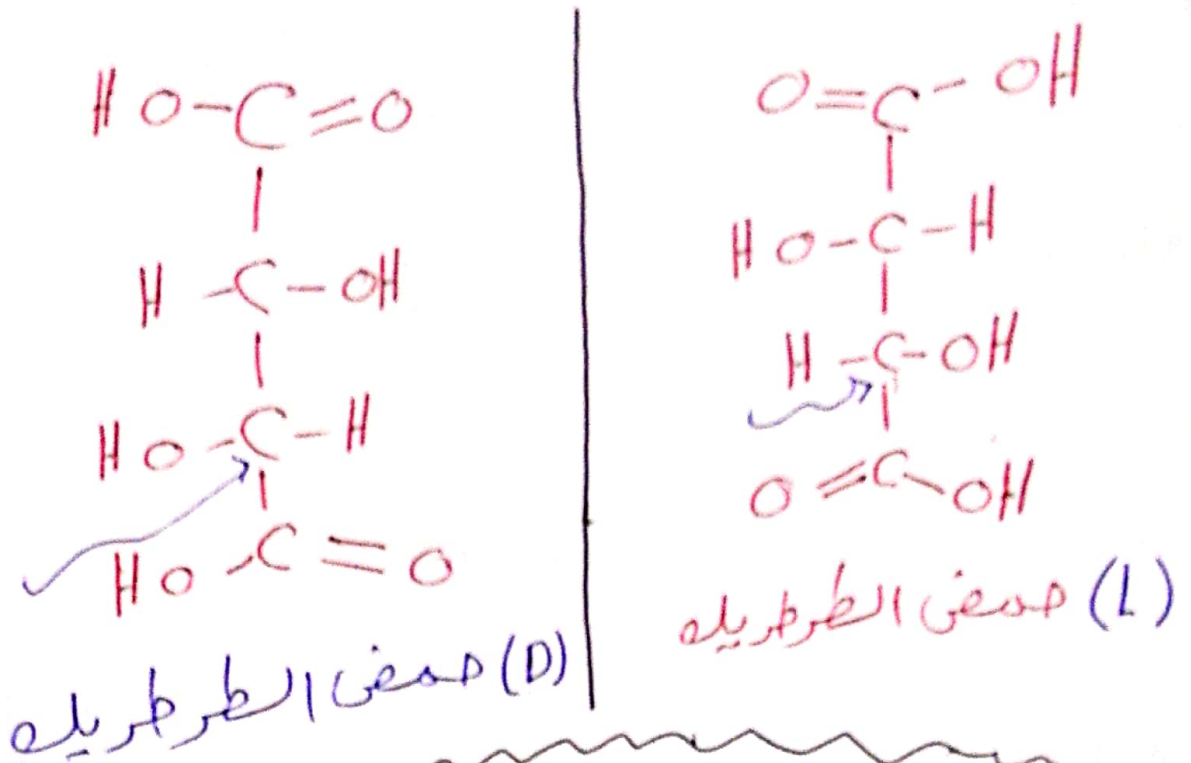 HO-C=O
H-C-OH
HO-C-H
HO-C=O
(D) حمض الطرطريك
O=C-OH
HO-C-H
H-C-OH
O=C-OH
(L) حمض الطرطريك